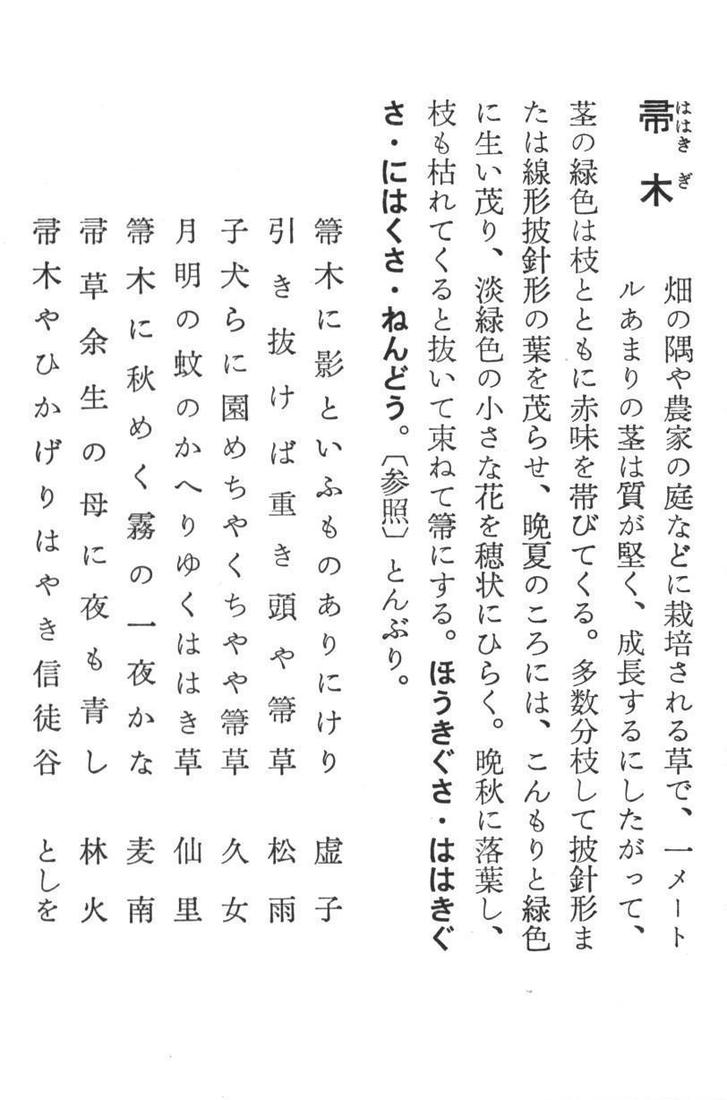 帚木
ははきぎ
畑の隅や農家の庭などに栽培される草で、一メート
ルあまりの茎は質が堅く、成長するにしたがって、
茎の緑色は枝とともに赤味を帯びてくる。多数分枝して披針形ま
たは線形披針形の葉を茂らせ、晩夏のころには、こんもりと緑色
に生い茂り、淡緑色の小さな花を穂状にひらく。晩秋に落葉し、
枝も枯れてくると抜いて束ねて箒にする。ほうきぐさ・ははきぐ
さ・にはくさ・ねんどう。〔参照〕とんぶり。
箒木に影といふものありにけり　虚子
引き抜けば重き頭や箒草　松雨
子犬らに園めちやくちやや箒草　久女
月明の蚊のかへりゆくははき草　仙里
箒木に秋めく霧の一夜かな　麦南
帚草余生の母に夜も青し　林火
帚木やひかげりはやき信徒谷　としを